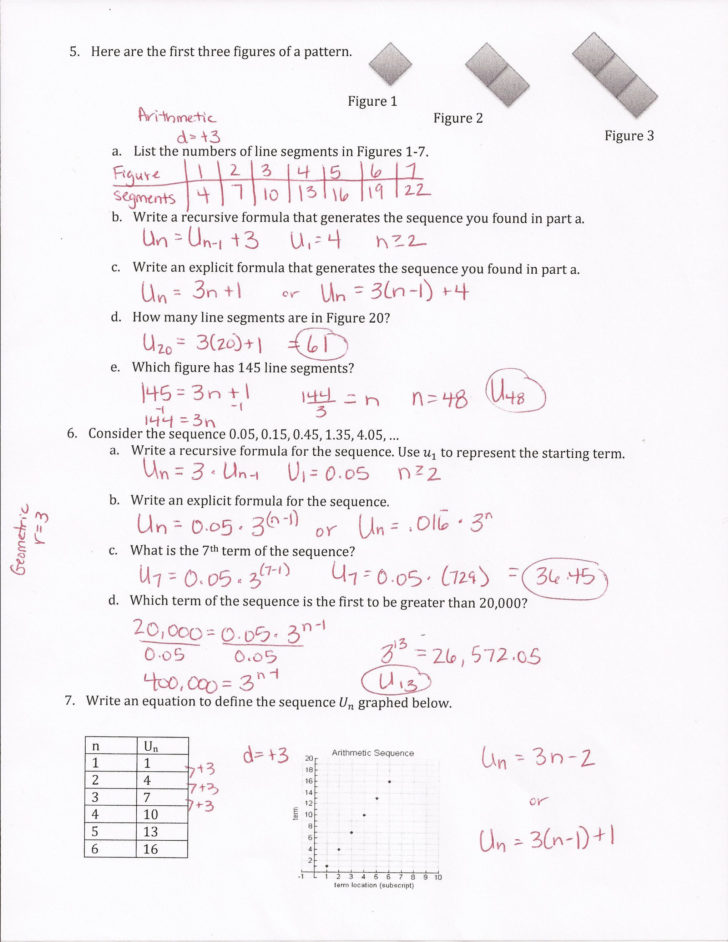 5. Here are the first three figures of a pattern.
Figure 1
Figure 2
Figure 3
Arithmetic
d=+3
a. List the numbers of line segments in Figures 1-7.
Figure | 1 | 2 | 3 | 4 | 5 | 6 | 7
Segments | 4 | 7 | 10 | 13 | 16 | 19 | 22
b. Write a recursive formula that generates the sequence you found in part a.
Un = Un-1 + 3 U1 = 4 n≥2
c. Write an explicit formula that generates the sequence you found in part a.
Un = 3n+1 or Un = 3(n-1)+4
d. How many line segments are in Figure 20?
U20 = 3(20)+1 = 61
e. Which figure has 145 line segments?
145 = 3n + 1 144/3 = n n=48 U48
-1 -1
144 = 3n
6. Consider the sequence 0.05, 0.15, 0.45, 1.35, 4.05, ...
a. Write a recursive formula for the sequence. Use u1 to represent the starting term.
Un = 3 · Un-1 U1 = 0.05 n≥2
Geometric
r=3
b. Write an explicit formula for the sequence.
Un = 0.05 · 3^(n-1) or Un = .016̅ · 3^n
c. What is the 7th term of the sequence?
U7 = 0.05 · 3^(7-1) U7 = 0.05 · (729) = 36.45
d. Which term of the sequence is the first to be greater than 20,000?
20,000 = 0.05 · 3^n-1
0.05 0.05
3^13 = 26,572.05
400,000 = 3^n-1
U13
7. Write an equation to define the sequence Un graphed below.
n | Un
1 | 1
2 | 4
3 | 7
4 | 10
5 | 13
6 | 16
+3
+3
+3
d=+3
Arithmetic Sequence
20
18
16
14
12
10
8
6
4
2
term
-1 1 2 3 4 5 6 7 8 9 10
term location (subscript)
Un = 3n-2
or
Un = 3(n-1)+1